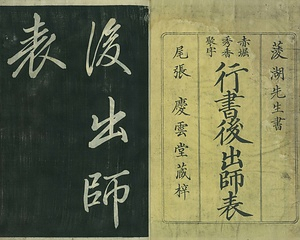 菱湖先生書
赤堀
秀香
聚字
行書後出師表
尾張 慶雲堂蔵梓
後出師
表